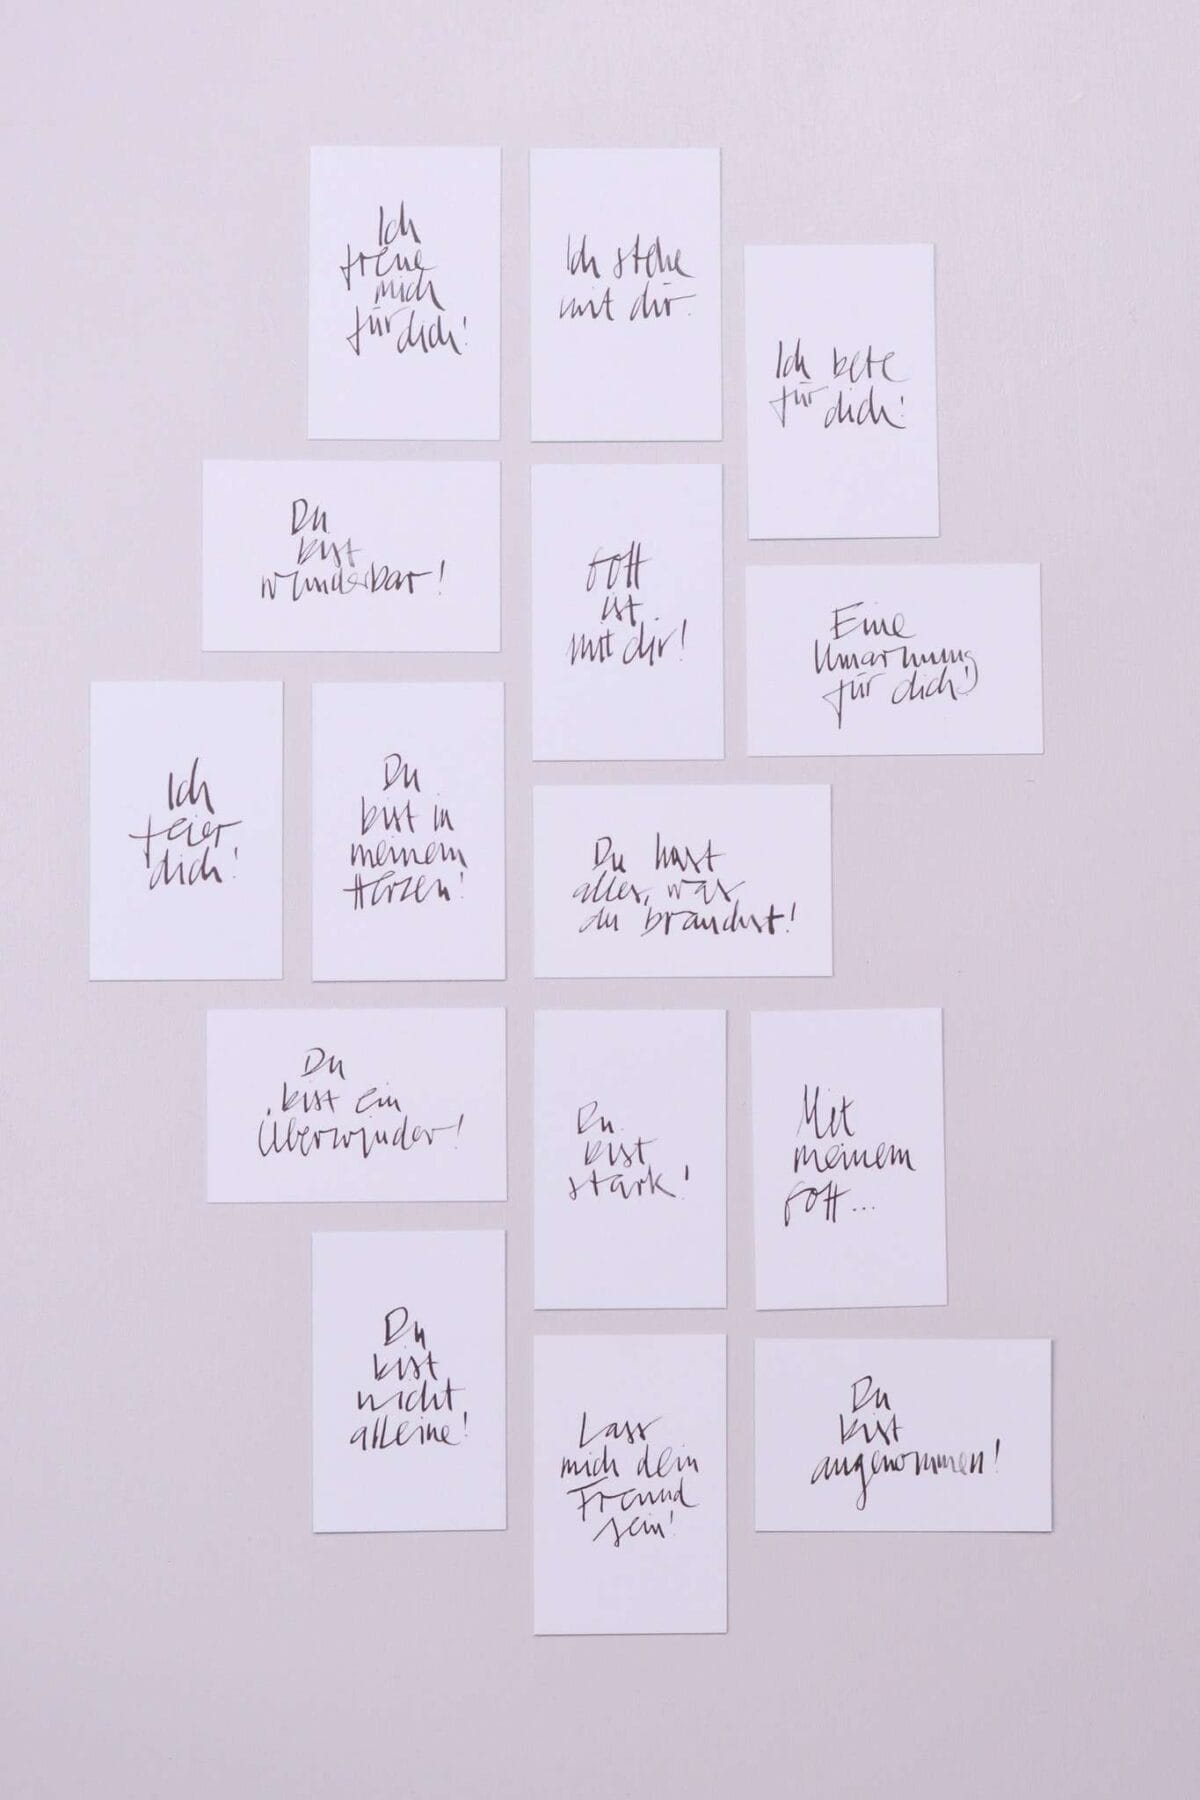 Ich
freue
mich
für dich!
Ich stehe
mit dir.
Ich bete
für dich!
Du
bist
wunderbar!
Gott
ist
mit dir!
Eine
Umarmung
für dich!
Ich
feier
dich!
Du
bist in
meinem
Herzen!
Du hast
alles, was
du brauchst!
Du
bist ein
Überwinder!
Du
bist
stark!
Mit
meinem
Gott...
Du
bist
nicht
alleine!
Lass
mich dein
Freund
sein!
Du
bist
angenommen!